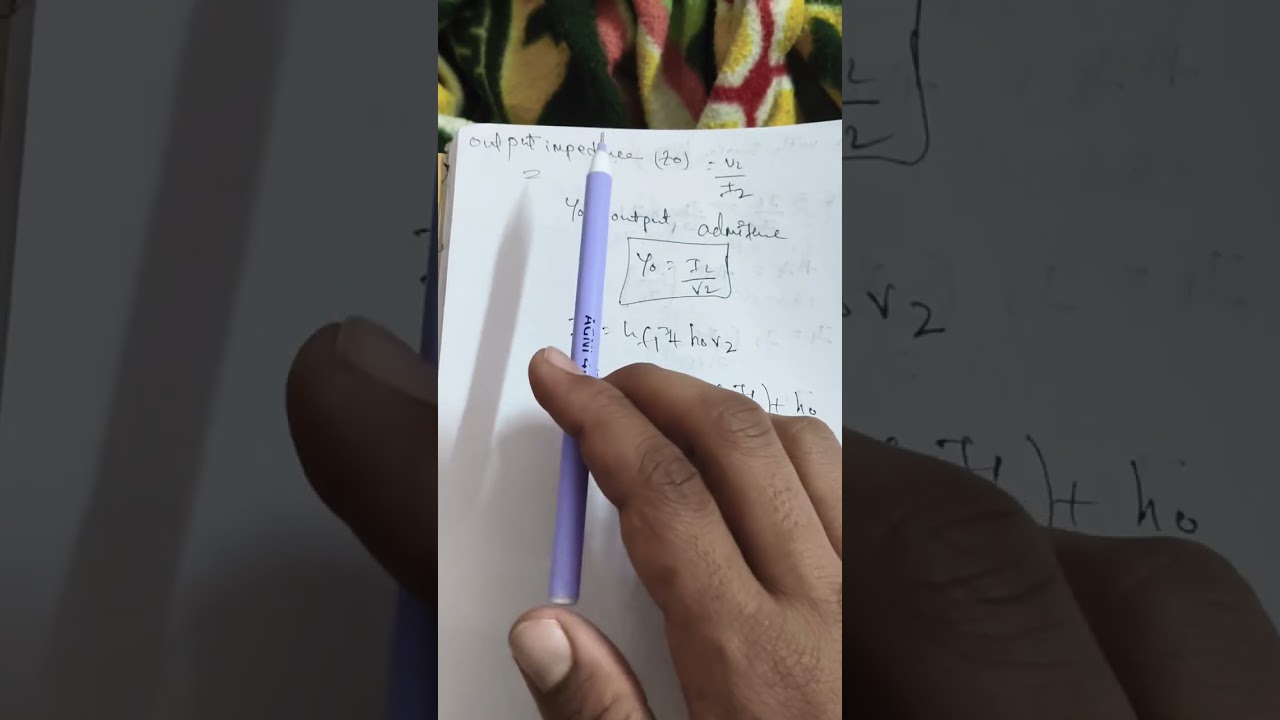 output impedence (Zo) = V2/I2
=
Yo output admitence
Yo = I2/V2
= hf I1 + hoV2
I1) + ho
AGNI 4